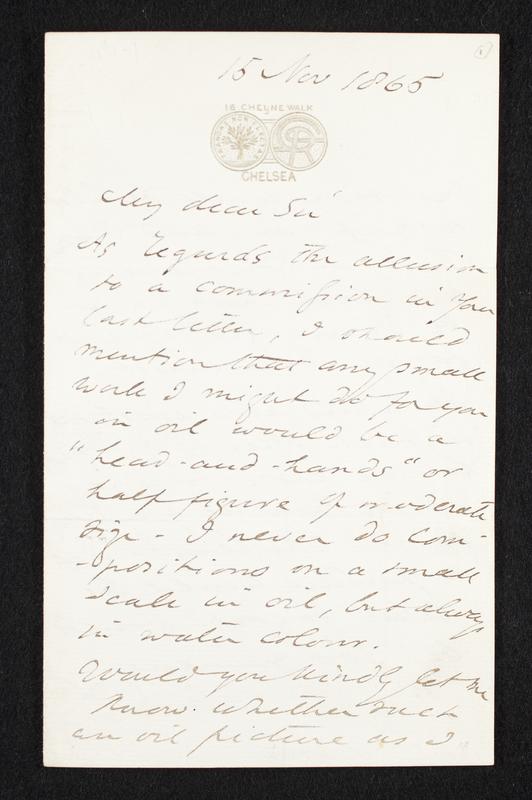 15 Nov 1865
16 CHEYNE WALK
CHELSEA
My dear Sir
As regards the allusion
to a commission in your
last letter, I should
mention that any small
work I might do for you
in oil would be a
"head-and-hands" or
half figure of moderate
size - I never do com-
-positions on a small
scale in oil, but always
in water colour.
Would you kindly let me
know whether such
an oil picture as I